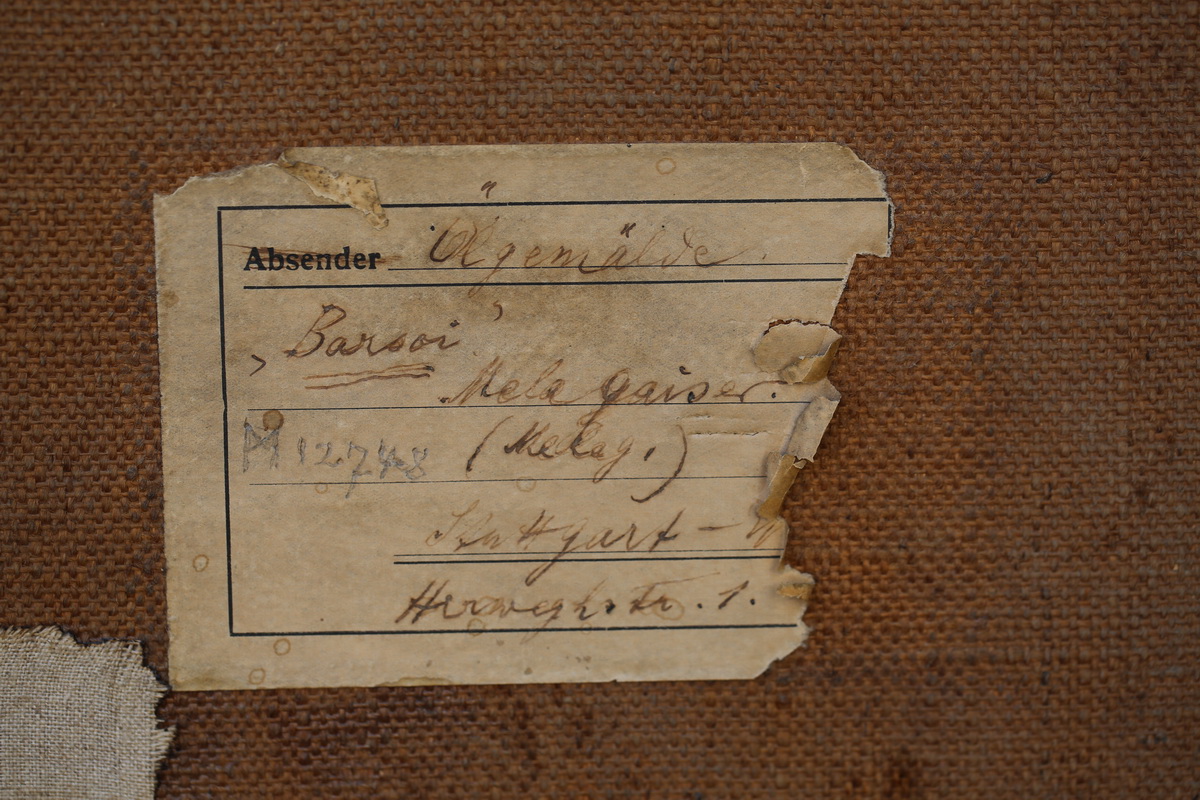 Absender Ölgemälde.
„Barsoi“
Mela Gaiser.
M 12748 (Melag.)
Stuttgart - W
Herweghstr. 1.